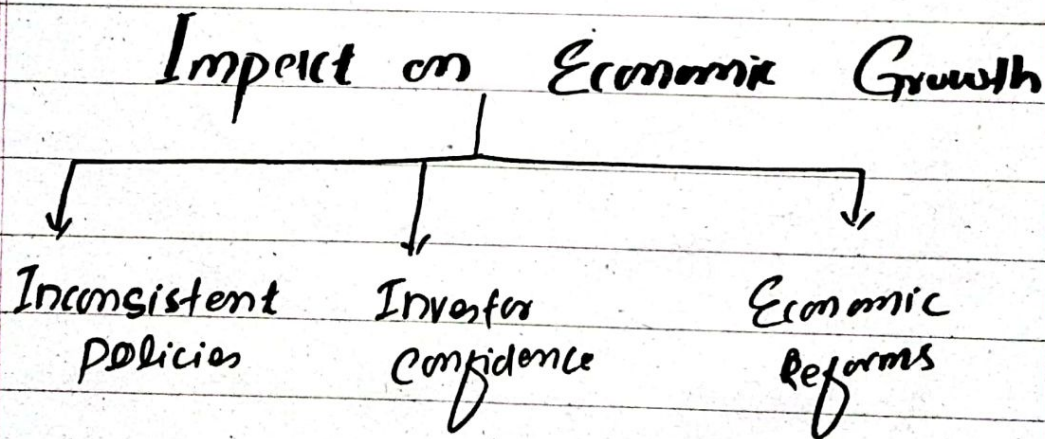 Impact on Economic Growth
Inconsistent Policies
Investor Confidence
Economic Reforms